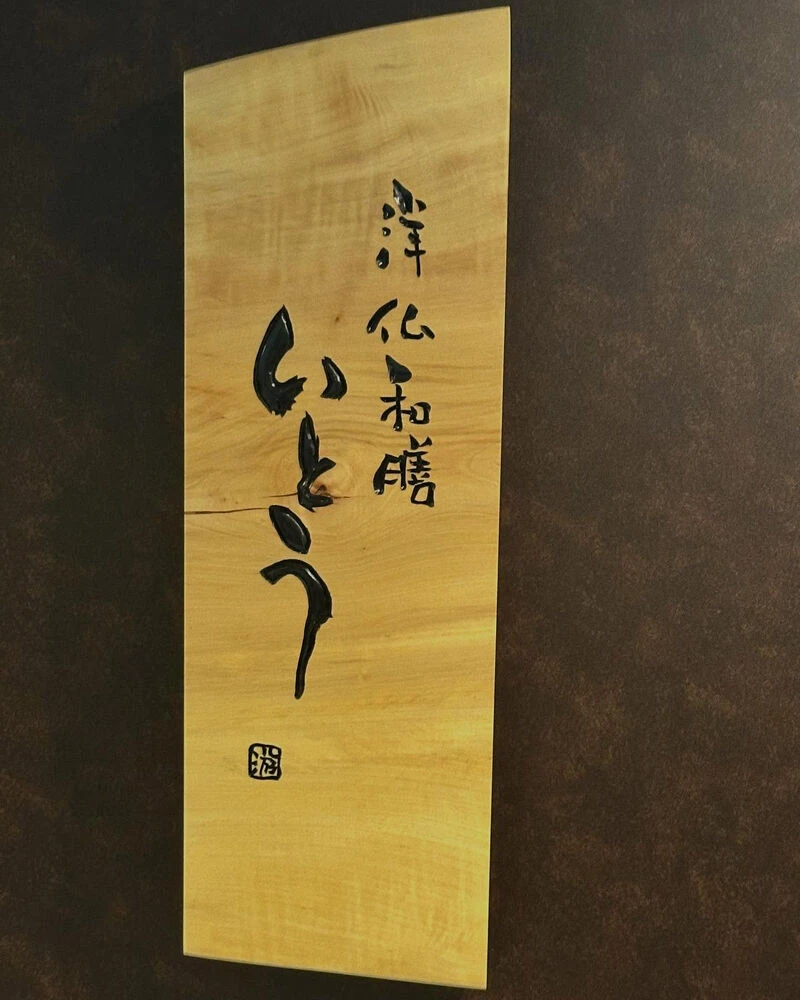 洋仏和膳
いとう